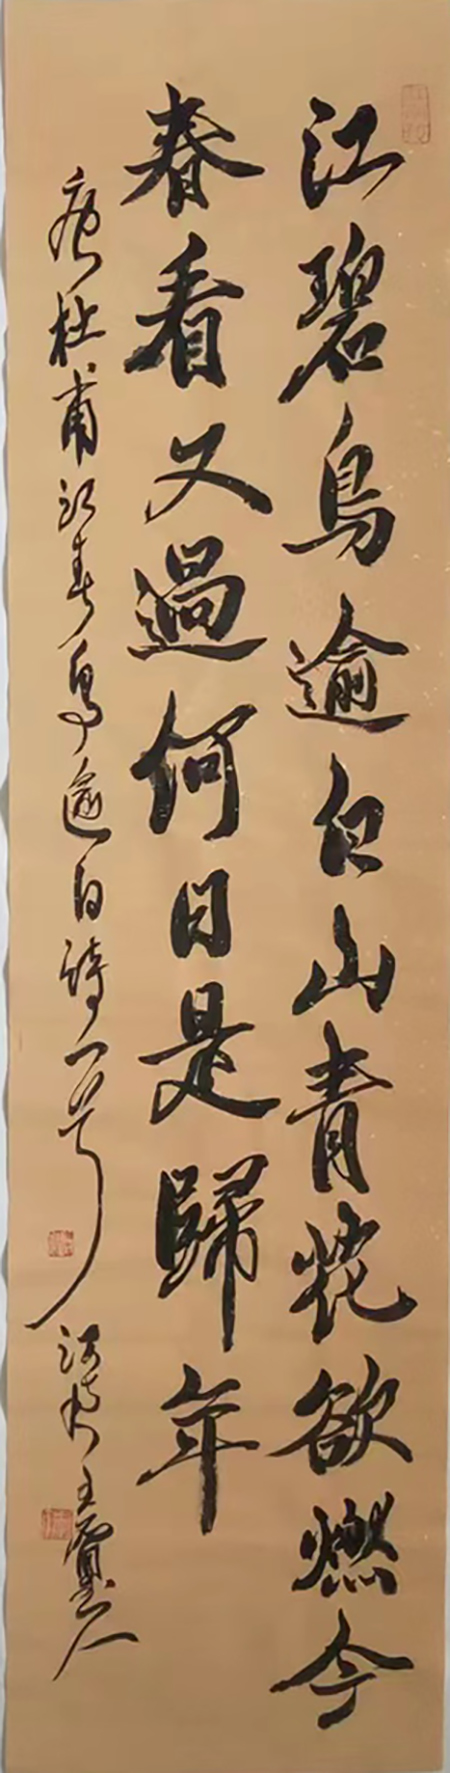 江碧鳥逾白山青花欲燃今
春看又過何日是歸年
唐杜甫江春鳥逾白詩一首
河南王寶人